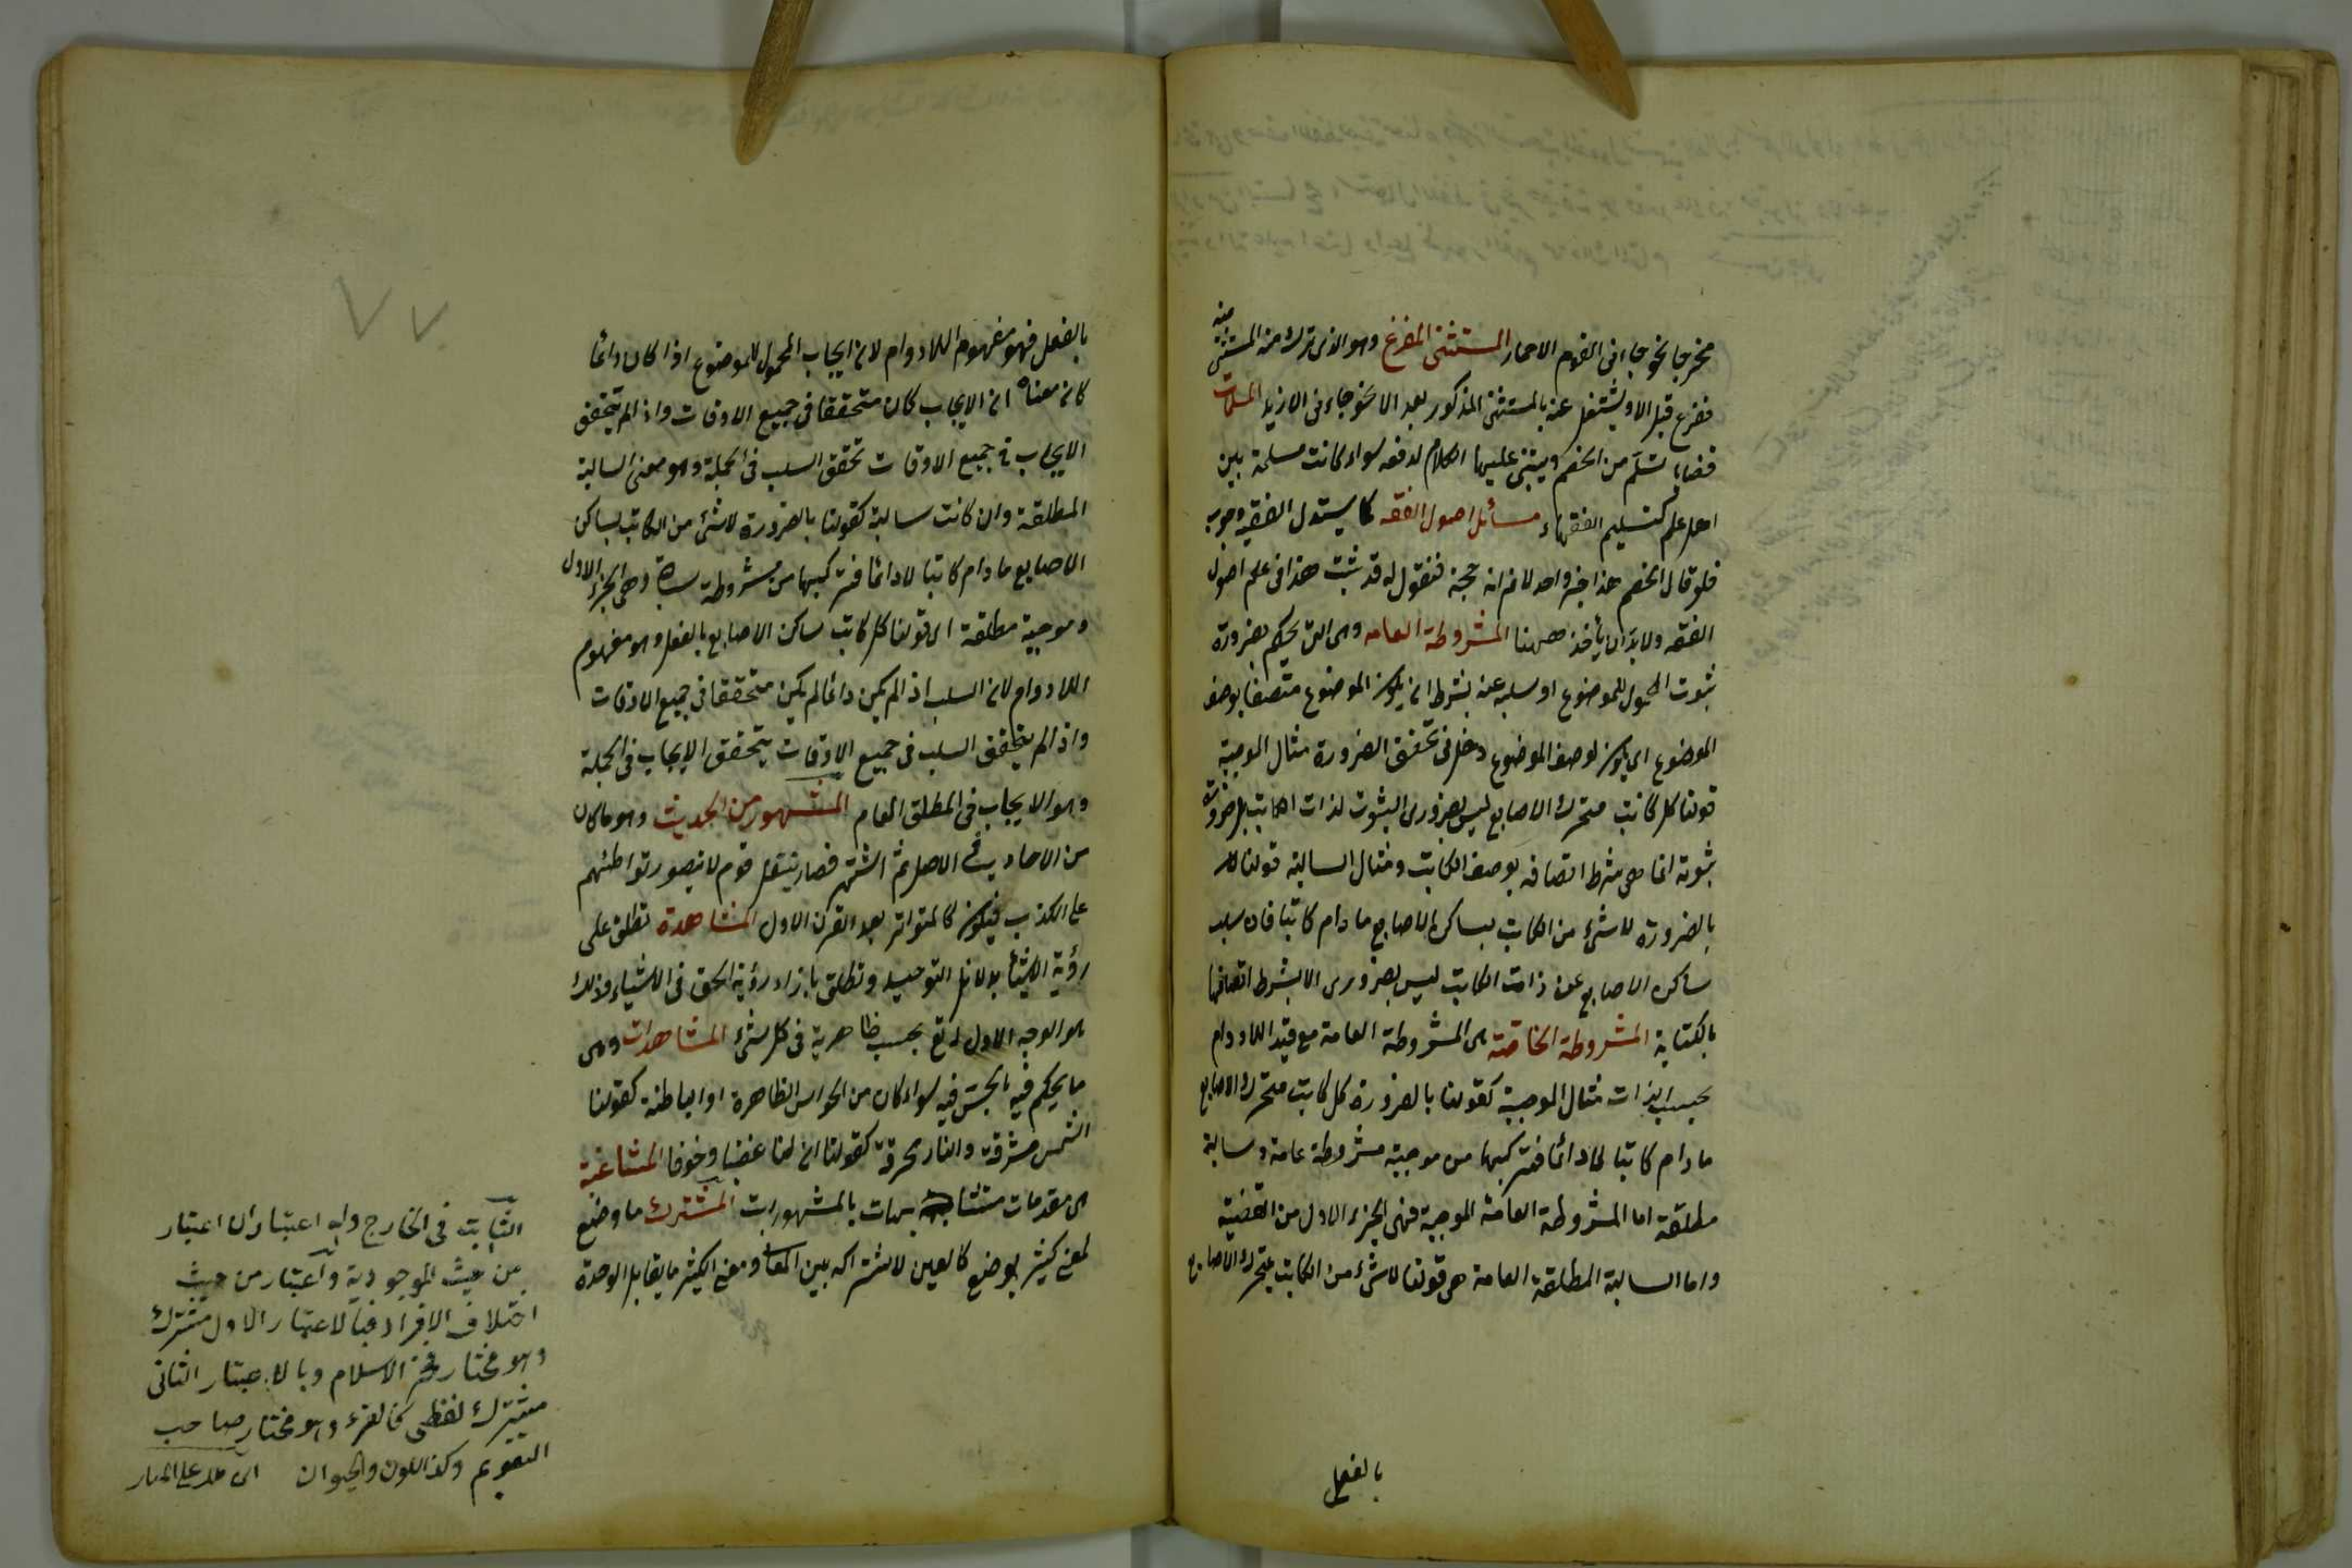 مخرجا نحو جاءنى القوم الا حمار المستثنى المفرغ وهو الذى ترك منه المستثنى منه
ففرغ قبل الا ويشتغل عنه بالمستثنى المذكور بعد الا نحو ما جاءنى الا زيد المسلمات
قضايا تسلّم من الخصم ويبتنى عليها الكلام لدفعه سواء كانت مسلمة بين
اهل علم كتسليم الفقهاء مسائل اصول الفقه كما يستدل الفقيه وجوب
فلو قال الخصم هذا خبر واحد لا نم انه حجة فنقول له قد ثبت هذا فى علم اصول
الفقه ولا بد ان يأخذ ههنا المشروطة العامة وهى التى يحكم بضرورة
ثبوت المحمول للموضوع او سلبه عنه بشرط ان يكون الموضوع متصفا بوصف
الموضوع اى يكون لوصف الموضوع دخل فى تحقق الضرورة مثال الموجبة
قولنا كل كاتب متحرك الاصابع ليس بضرورى الثبوت لذات الكاتب بل ضرورة
ثبوته انما هى بشرط اتصافه بوصف الكاتب ومثال السالبة قولنا
بالضرورة لا شئ من الكاتب بساكن الاصابع ما دام كاتبا فان سلب
ساكن الاصابع عن ذات الكاتب ليس بضرورى الا بشرط اتصافها
بالكتابة المشروطة الخاصّة هى المشروطة العامة مع قيد اللادوام
بحسب الذات مثال الموجبة كقولنا بالضرورة كل كاتب متحرك الاصابع
ما دام كاتبا لا دائما فتركيبها من موجبة مشروطة عامة وسالبة
مطلقة اما المشروطة العامة الموجبة فهى الجزء الاول من القضية
واما السالبة المطلقة العامة هى قولنا لا شئ من الكاتب بمتحرك الاصابع
بالفعل
٧٧
بالفعل فهو مفهوم اللادوام لان ايجاب المحمول للموضوع اذا كان دائما
كان معناه ان الايجاب كان متحققا فى جميع الاوقات واذا لم يتحقق
الايجاب فى جميع الاوقات تحقق السلب فى الجملة وهو معنى السالبة
المطلقة وان كانت سالبة كقولنا بالضرورة لا شئ من الكاتب بساكن
الاصابع ما دام كاتبا لا دائما فتركيبها من مشروطة سالبة وهى الجزء الاول
وموجبة مطلقة اى قولنا كل كاتب ساكن الاصابع بالفعل وهو مفهوم
اللادوام لان السلب اذا لم يكن دائما لم يكن متحققا فى جميع الاوقات
واذا لم يتحقق السلب فى جميع الاوقات يتحقق الايجاب فى الجملة
وهو الايجاب فى المطلق العام المشهور من الحديث وهو ما كان
من الاحاديث الاصل ثم اشتهر فصار ينقل قوم لا يتصور تواطئهم
على الكذب فيكون كالمتواتر بعد القرن الاول المشاهدة تطلق على
رؤية الاشياء بدلائل التوحيد وتطلق بازاء رؤية الحق فى الاشياء وذلك
هو الوجه الاول بحسب ظاهريته فى كل شئ المشاهدات وهى
ما يحكم فيه بالحس فيه سواء كان من الحواس الظاهرة او الباطنة كقولنا
الشمس مشرقة والنار محرقة كقولنا ان لنا غضبا وخوفا المشاغبة
هى مقدمات متشابهات بالمشهورات المشترك ما وضع
لمعنى كثير بوضع كالعين لاشتراكه بين المعانى ومعنى الكثير ما يقابل الوحدة
الثابت فى الخارج وله اعتباران اعتبار
من حيث الموجودية واعتبار من حيث
اختلاف الافراد فبالاعتبار الاول مشترك
وهو مختار فخر الاسلام وبالاعتبار الثانى
مشترك لفظى كالقرء وهو مختار صاحب
التقويم وكذا اللون والحيوان